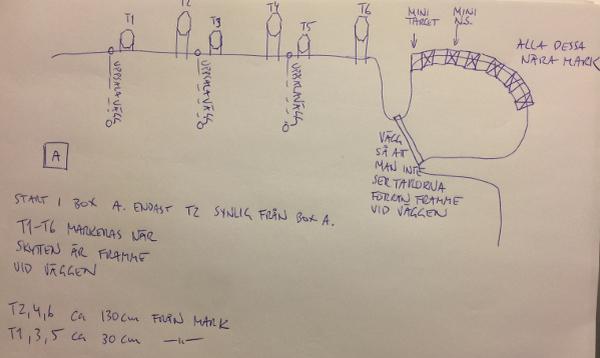 T1
T2
T3
T4
T5
T6
MINI
TARGET
MINI
N.S.
ALLA DESSA
NÄRA MARK
UPPSALAVÄGG
UPPSALAVÄGG
UPPSALAVÄGG
VÄGG
SÅ ATT
MAN INTE
SER TAVLORNA
FÖRRÄN FRAMME
VID VÄGGEN
A
START I BOX A. ENDAST T2 SYNLIG FRÅN BOX A.
T1-T6 MARKERAS NÄR
SKYTTEN ÄR FRAMME
VID VÄGGEN
T2,4,6 ca 130cm FRÅN MARK
T1,3,5 ca 30cm —"—